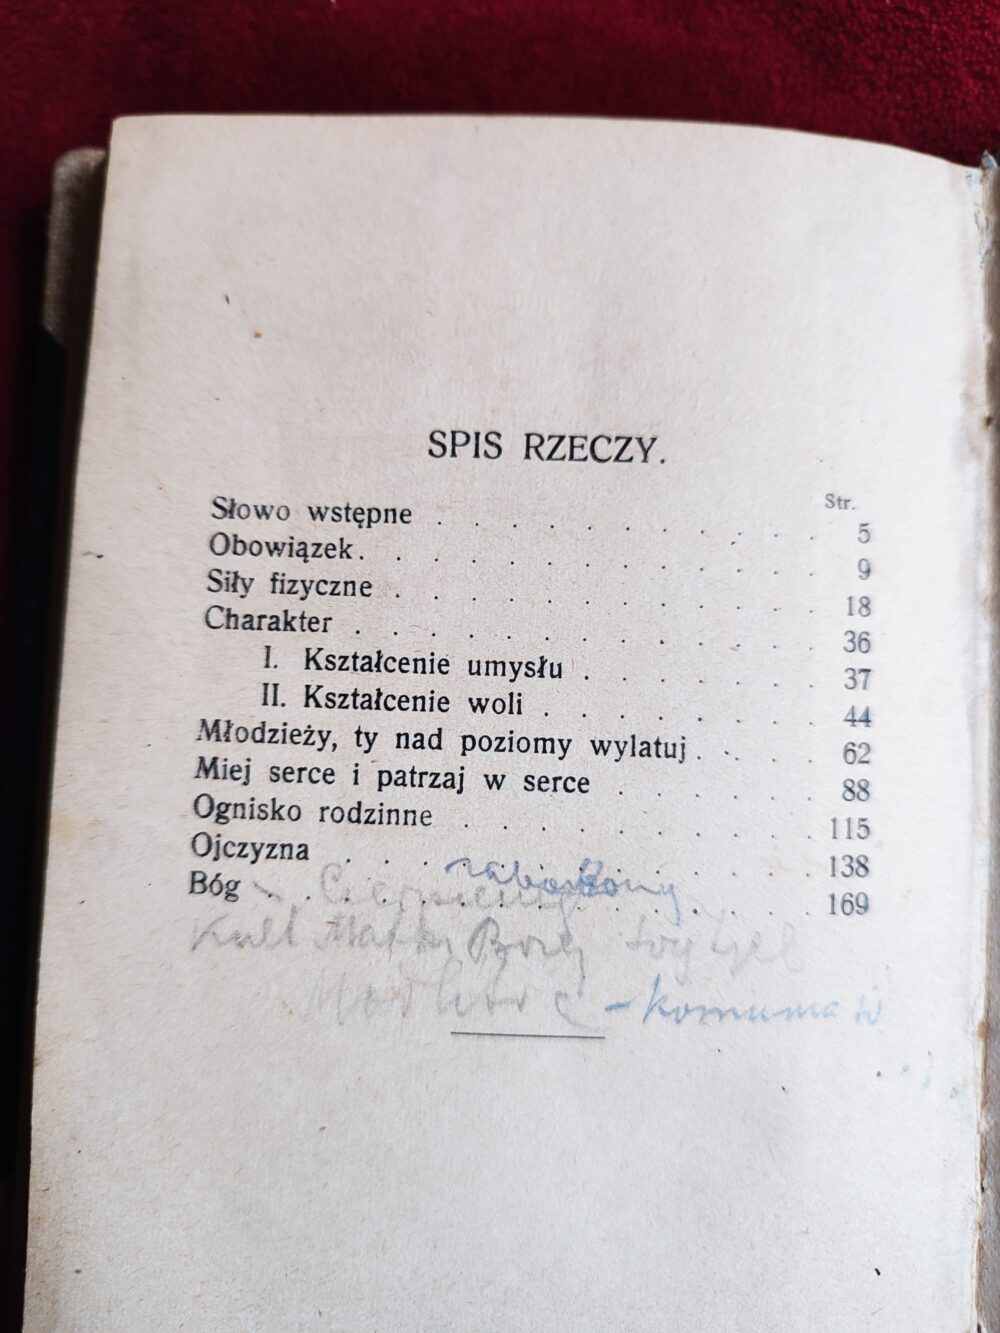 SPIS RZECZY.
Str.
Słowo wstępne . . . . . . . . . . . 5
Obowiązek . . . . . . . . . . . . . 9
Siły fizyczne . . . . . . . . . . . . 18
Charakter . . . . . . . . . . . . . 36
I. Kształcenie umysłu . . . . . . . 37
II. Kształcenie woli . . . . . . . . 44
Młodzieży, ty nad poziomy wylatuj . . . . 62
Miej serce i patrzaj w serce . . . . . . 88
Ognisko rodzinne . . . . . . . . . . 115
Ojczyzna . . . . . . . . . . . . . 138
Bóg . . . . . . . . . . . . . . . 169
Kult Matki Bożej